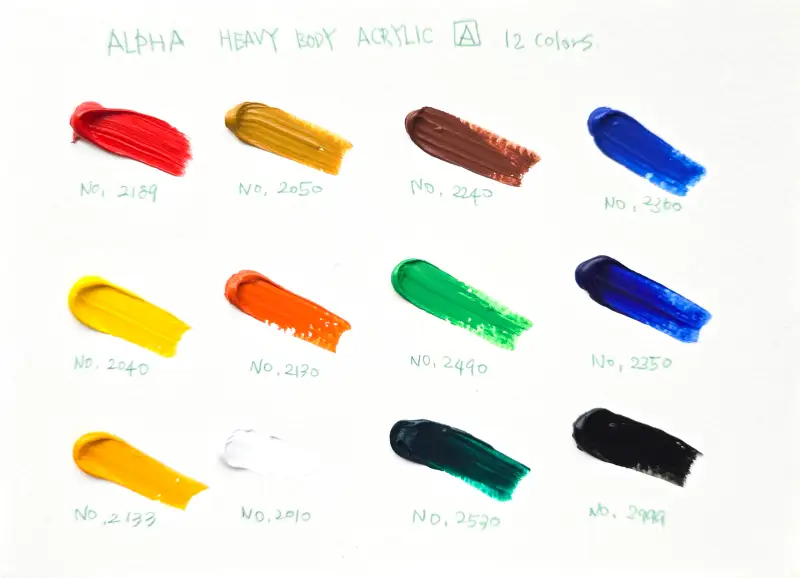 ALPHA HEAVY BODY ACRYLIC A 12 colors.
No. 2189 No. 2050 No. 2240 No. 2360
No. 2040 No. 2130 No. 2490 No. 2350
No. 2133 No. 2010 No. 2530 No. 2999